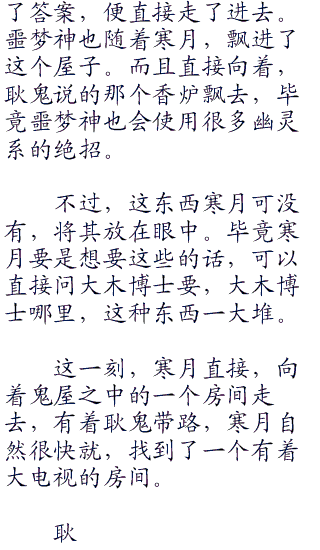 了答案，便直接走了进去。
噩梦神也随着寒月，飘进了
这个屋子。而且直接向着，
耿鬼说的那个香炉飘去，毕
竟噩梦神也会使用很多幽灵
系的绝招。
不过，这东西寒月可没
有，将其放在眼中。毕竟寒
月要是想要这些的话，可以
直接问大木博士要，大木博
士哪里，这种东西一大堆。
这一刻，寒月直接，向
着鬼屋之中的一个房间走
去，有着耿鬼带路，寒月自
然很快就，找到了一个有着
大电视的房间。
耿